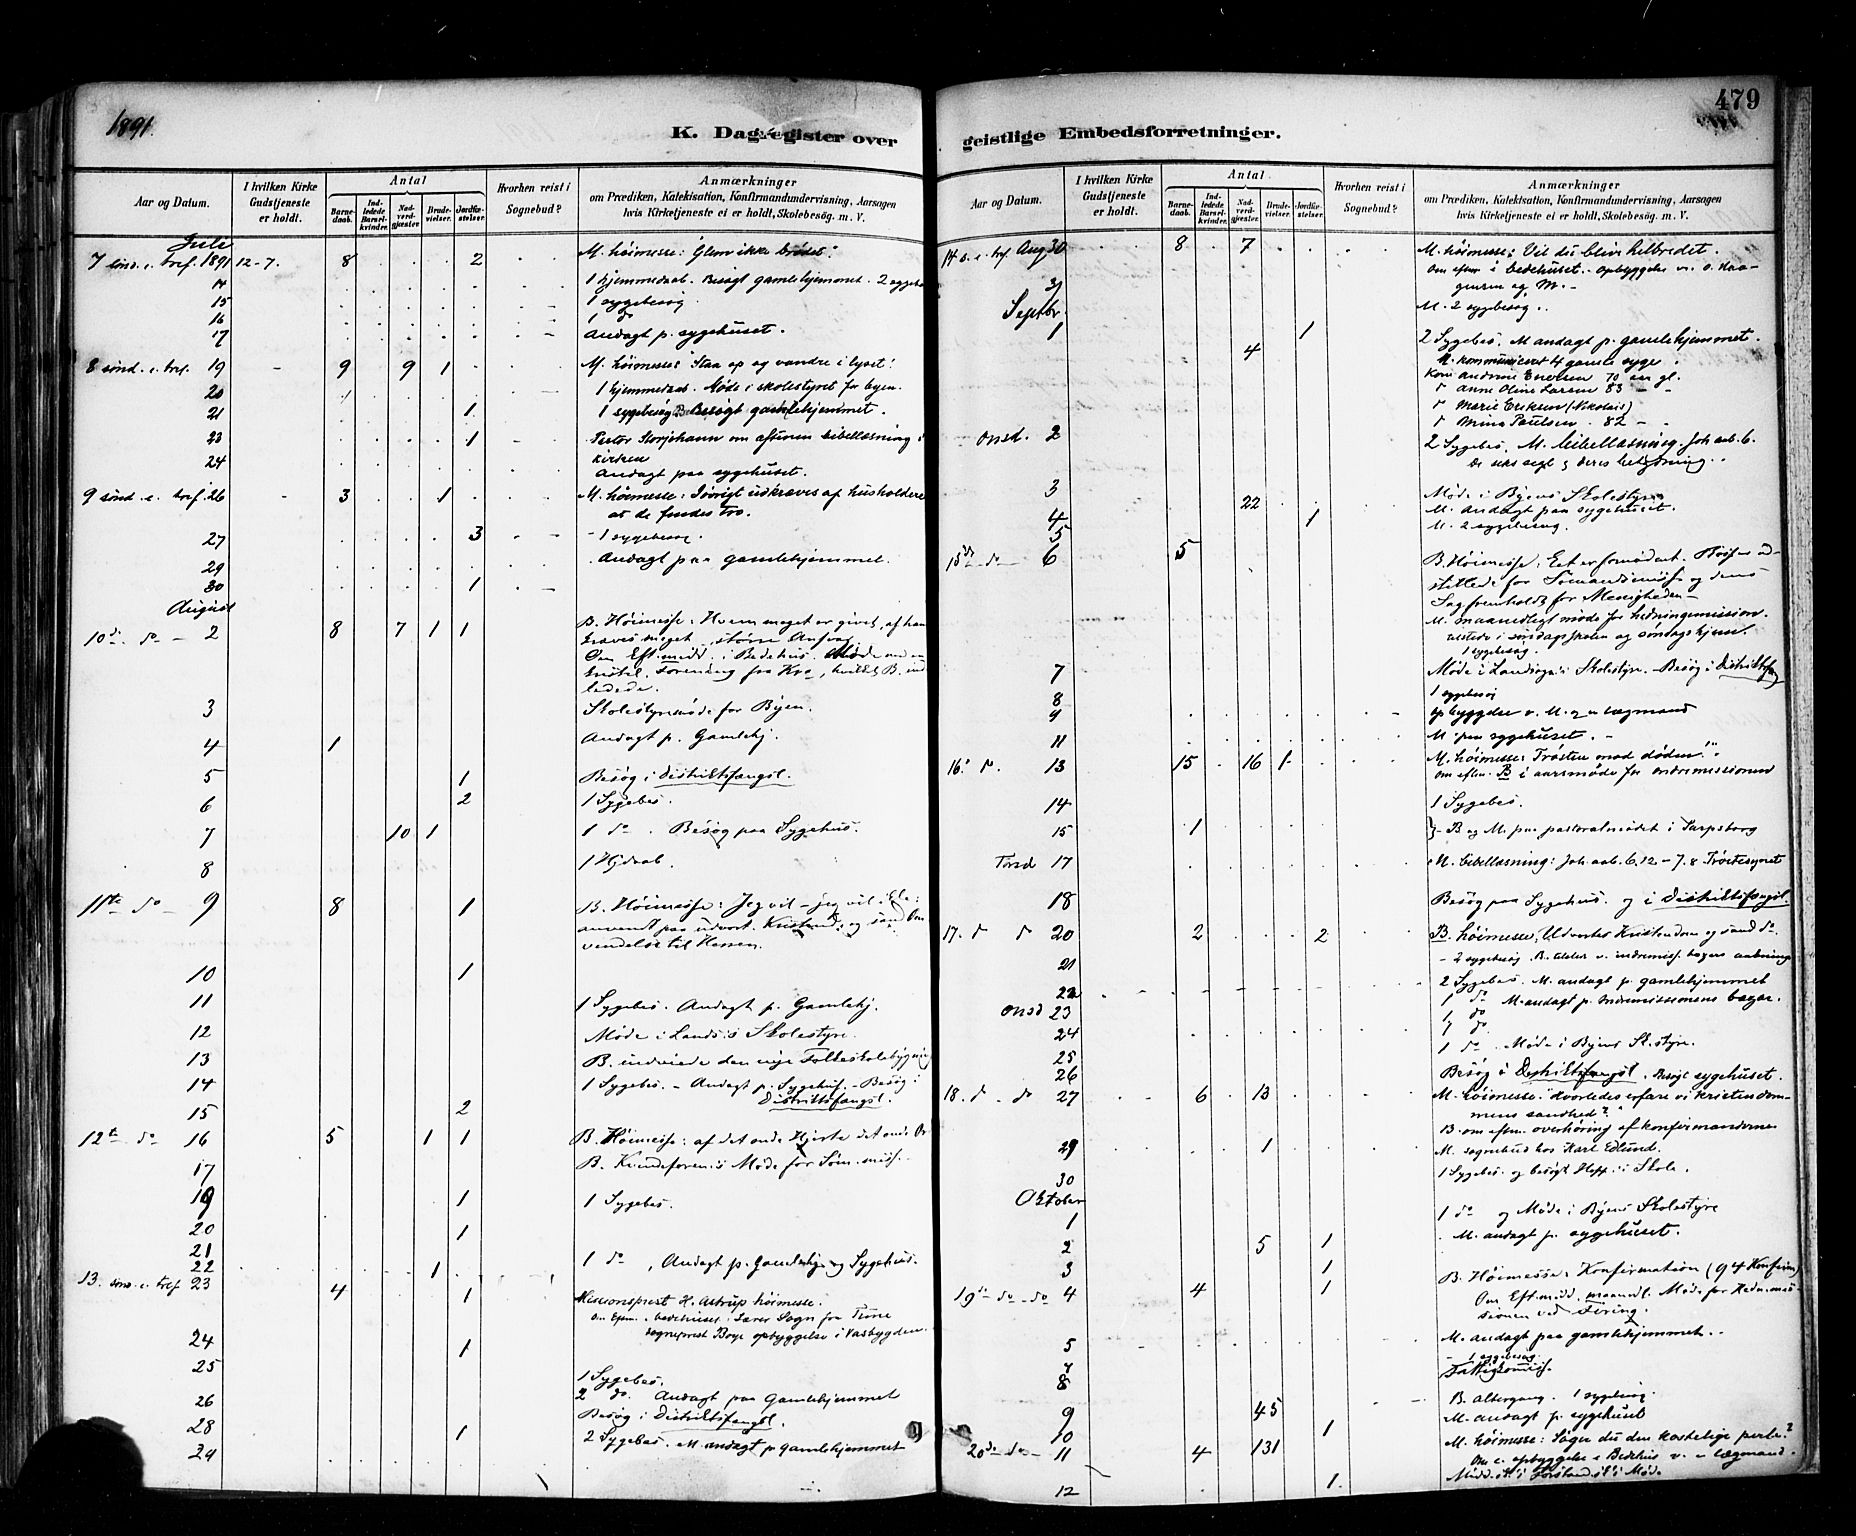 1891.
K. Dagregister over
Aar og Datum.
I hvilken Kirke Gudstjeneste er holdt.
Antal
Barnedaab.
Indledede Barselkvinder.
Nadverdgjester.
Brudevielser.
Jordfæstelser.
Hvorhen reist i Sognebud?
Anmærkninger
om Prædiken, Katekisation, Konfirmandundervisning, Aarsagen
hvis Kirketjeneste ei er holdt, Skolebesög. m. V.
Juli
7 sönd. e. tref. 1891 12-7. 8 2 M. höimesse: Glem ikke brödet!
14 1 hjemmedaab. Besögt gamlehjemmet. 2 sygebes
15 1 sygebesög
16 1 do
17 Andagt p. sygehuset.
8 sönd. e. tref. 19 9 9 1 M. höimesse: Staa op og vandre i lyset!
20 1 hjemmedaab. Möde i skolestyret for byen.
21 1 1 sygebesög. Besögt gamlehjemmet.
23 1 Pastor Storjohann om aftenen bibellæsning i
kirken
24 Andagt paa sygehuset.
9 sönd. e. tref. 26 3 1 M. höimesse: Iövrigt udkræves af husholdere
at de findes tro.
27 3 1 sygebesög.
29 Andagt paa gamlehjemmet.
30 1
August
10de do 2 8 7 1 1 B. Höimesse: Hvem meget er givet, af ham
kræves meget, större Ansvar
Om Eftmidd. i Bedehus. Möde
kristel. Forening fra Kra, hvilket B. ind
ledede.
3 Skolestyremöde for Byen.
4 1 Andagt p. Gamlehj.
5 1 Besög i Distriktsfængsl.
6 2 1 Sygebes.
7 10 1 1 do. Besög paa Sygehus.
8 1 Hjdaab.
11te do 9 8 1 B. Höimesse: Jeg vil - jeg vil ikke:
anvendt paa udvort. Kristend. og sand Om
vendelse til Herren.
10 1
11 1 Sygebes. Andagt p. Gamlehj.
12 Möde i Lands.s Skolestyre.
13 B. indviede den nye Folkeskolebygning
14 1 Sygebes. - Andagt p. Sygehus. - Besög i
Distriktsfængsl.
15 2
12te do 16 5 1 1 B. Höimesse: af det onde Hjerte det onde Or
17 B. Kvindeforen.s Möde for Söm. miss.
19 1 1 Sygebes.
20 1
21 1 do, Andagt p. Gamlehj. og Sygehus.
22 1
13. sönd. e. tref. 23 4 1 Missionsprest H. Astrup höimesse.
Om Eftm. i bedehuset. Lærer Sogn fra Tune
sogneprest Boye opbyggelse i Vasbygden.
24 1
25 1 Sygebes.
26 2 do. Andagt paa Gamlehjemmet
Besög i Distriktsfængsl.
28 1 2 Sygebes. M. andagt p. gamlehjemmet
29
479
geistlige Embedsforretninger.
Aar og Datum.
I hvilken Kirke Gudstjeneste er holdt.
Antal
Barnedaab.
Indledede Barselkvinder.
Nadverdgjester.
Brudevielser.
Jordfæstelser.
Hvorhen reist i Sognebud?
Anmærkninger
om Prædiken, Katekisation, Konfirmandundervisning, Aarsagen
hvis Kirketjeneste ei er holdt, Skolebesög. m. V.
14 s. e. tref. Aug 30 8 7 M. höimesse: Vil du blive helbredet.
Om eftm. i bedehuset. Opbyggelse v. O. Haa-
gensen og M. -
31 M. 2 sygebesög.
Septbr.
1 1 2 Sygebes. M. andagt p. gamlehjemmet.
4 M. kommuniceret 4 gamle syge
Kari Andrine Enersen 70 aar gl.
Anne Oline Larsen 83 - -
Marie Eriksen (Nikolais)
Mina Paulsen 82 - -
Onsd. 2 2 Sygebes. M. bibellæsning. Joh. aab. 6.
De seks segl og deres betydning.
3 Möde i Byens Skolestyre
4 22 1 M. andagt paa sygehuset.
5 M. 2 sygebesög.
15de do 6 5 B. Höimesse: Eet er fornödent.
stillede for Sömandsmiss. og dens
Sag fremholdt for Menigheden -
M. maanedligt möde for hedningemission.
tilstede i söndagsskolen og söndagshjem.
1 sygebesög.
7 Möde i Landsogn.s Skolestyre. - Besög i Distriktsf.
8 1 sygebesög
9 Opbyggelse v. M. og en lægmand
11 M. paa sygehuset. -
16. d. 13 15 16 1 M. höimesse: Trösten mod döden!
Om eftm. B i aarsmöde for indremissionen
14 1 Sygebes.
15 1 B og M. paa pastoralmödet i Sarpsborg
Torsd 17 M. bibellæsning: Joh. aab. 6. 12 - 7. 8 Tröstesynet
18 Besög paa Sygehus. og i Distriktsfængsl.
17. d d 20 2 2 B. höimesse, Udvortes Kristendom og sand do.
- 2 sygebesög. B. talte v. indremiss. bazars aabning
21 2 Sygebes. M. andagt p. gamlehjemmet
22 1 do M. andagt p. indremissionens bazar.
Onsd 23 1 do
24 1 do.
25 1 do. Möde i Byens Sk.styre.
26 Besög i Distriktsfængsl. Besögt sygehuset.
18. d. do 27 6 13 M. höimesse: "Hvorledes erfare vi kristendom-
mens sandhed?"
B. om eftm. overhöring af konfirmanderne
29 1 M. sognebud hos Karl Edlund.
1 Sygebes. og besögt Hepp.s Skole.
30
Oktober
1 1 do og Möde i Byens Skolestyre
2 5 1 M. andagt p. sygehuset.
3 1
19de do do 4 4 1 B. Höimesse: Konfirmation (94 Konfirm)
Om Eftmidd. maanedl. Möde for Hedn. mis-
sionen ved Föring.
5 M. andagt paa gamlehjemmet. -
- 1 sygebesög
7 Fattigkomiss.
8 B. altergang. 1 sygebesög.
9 45 M. andagt p. sygehuset
10 1
20de do 11 4 131 M. höimesse: Söger du den kostelige perle?
Om e. opbyggelse i Bedehus v. en lægmand.
12 1